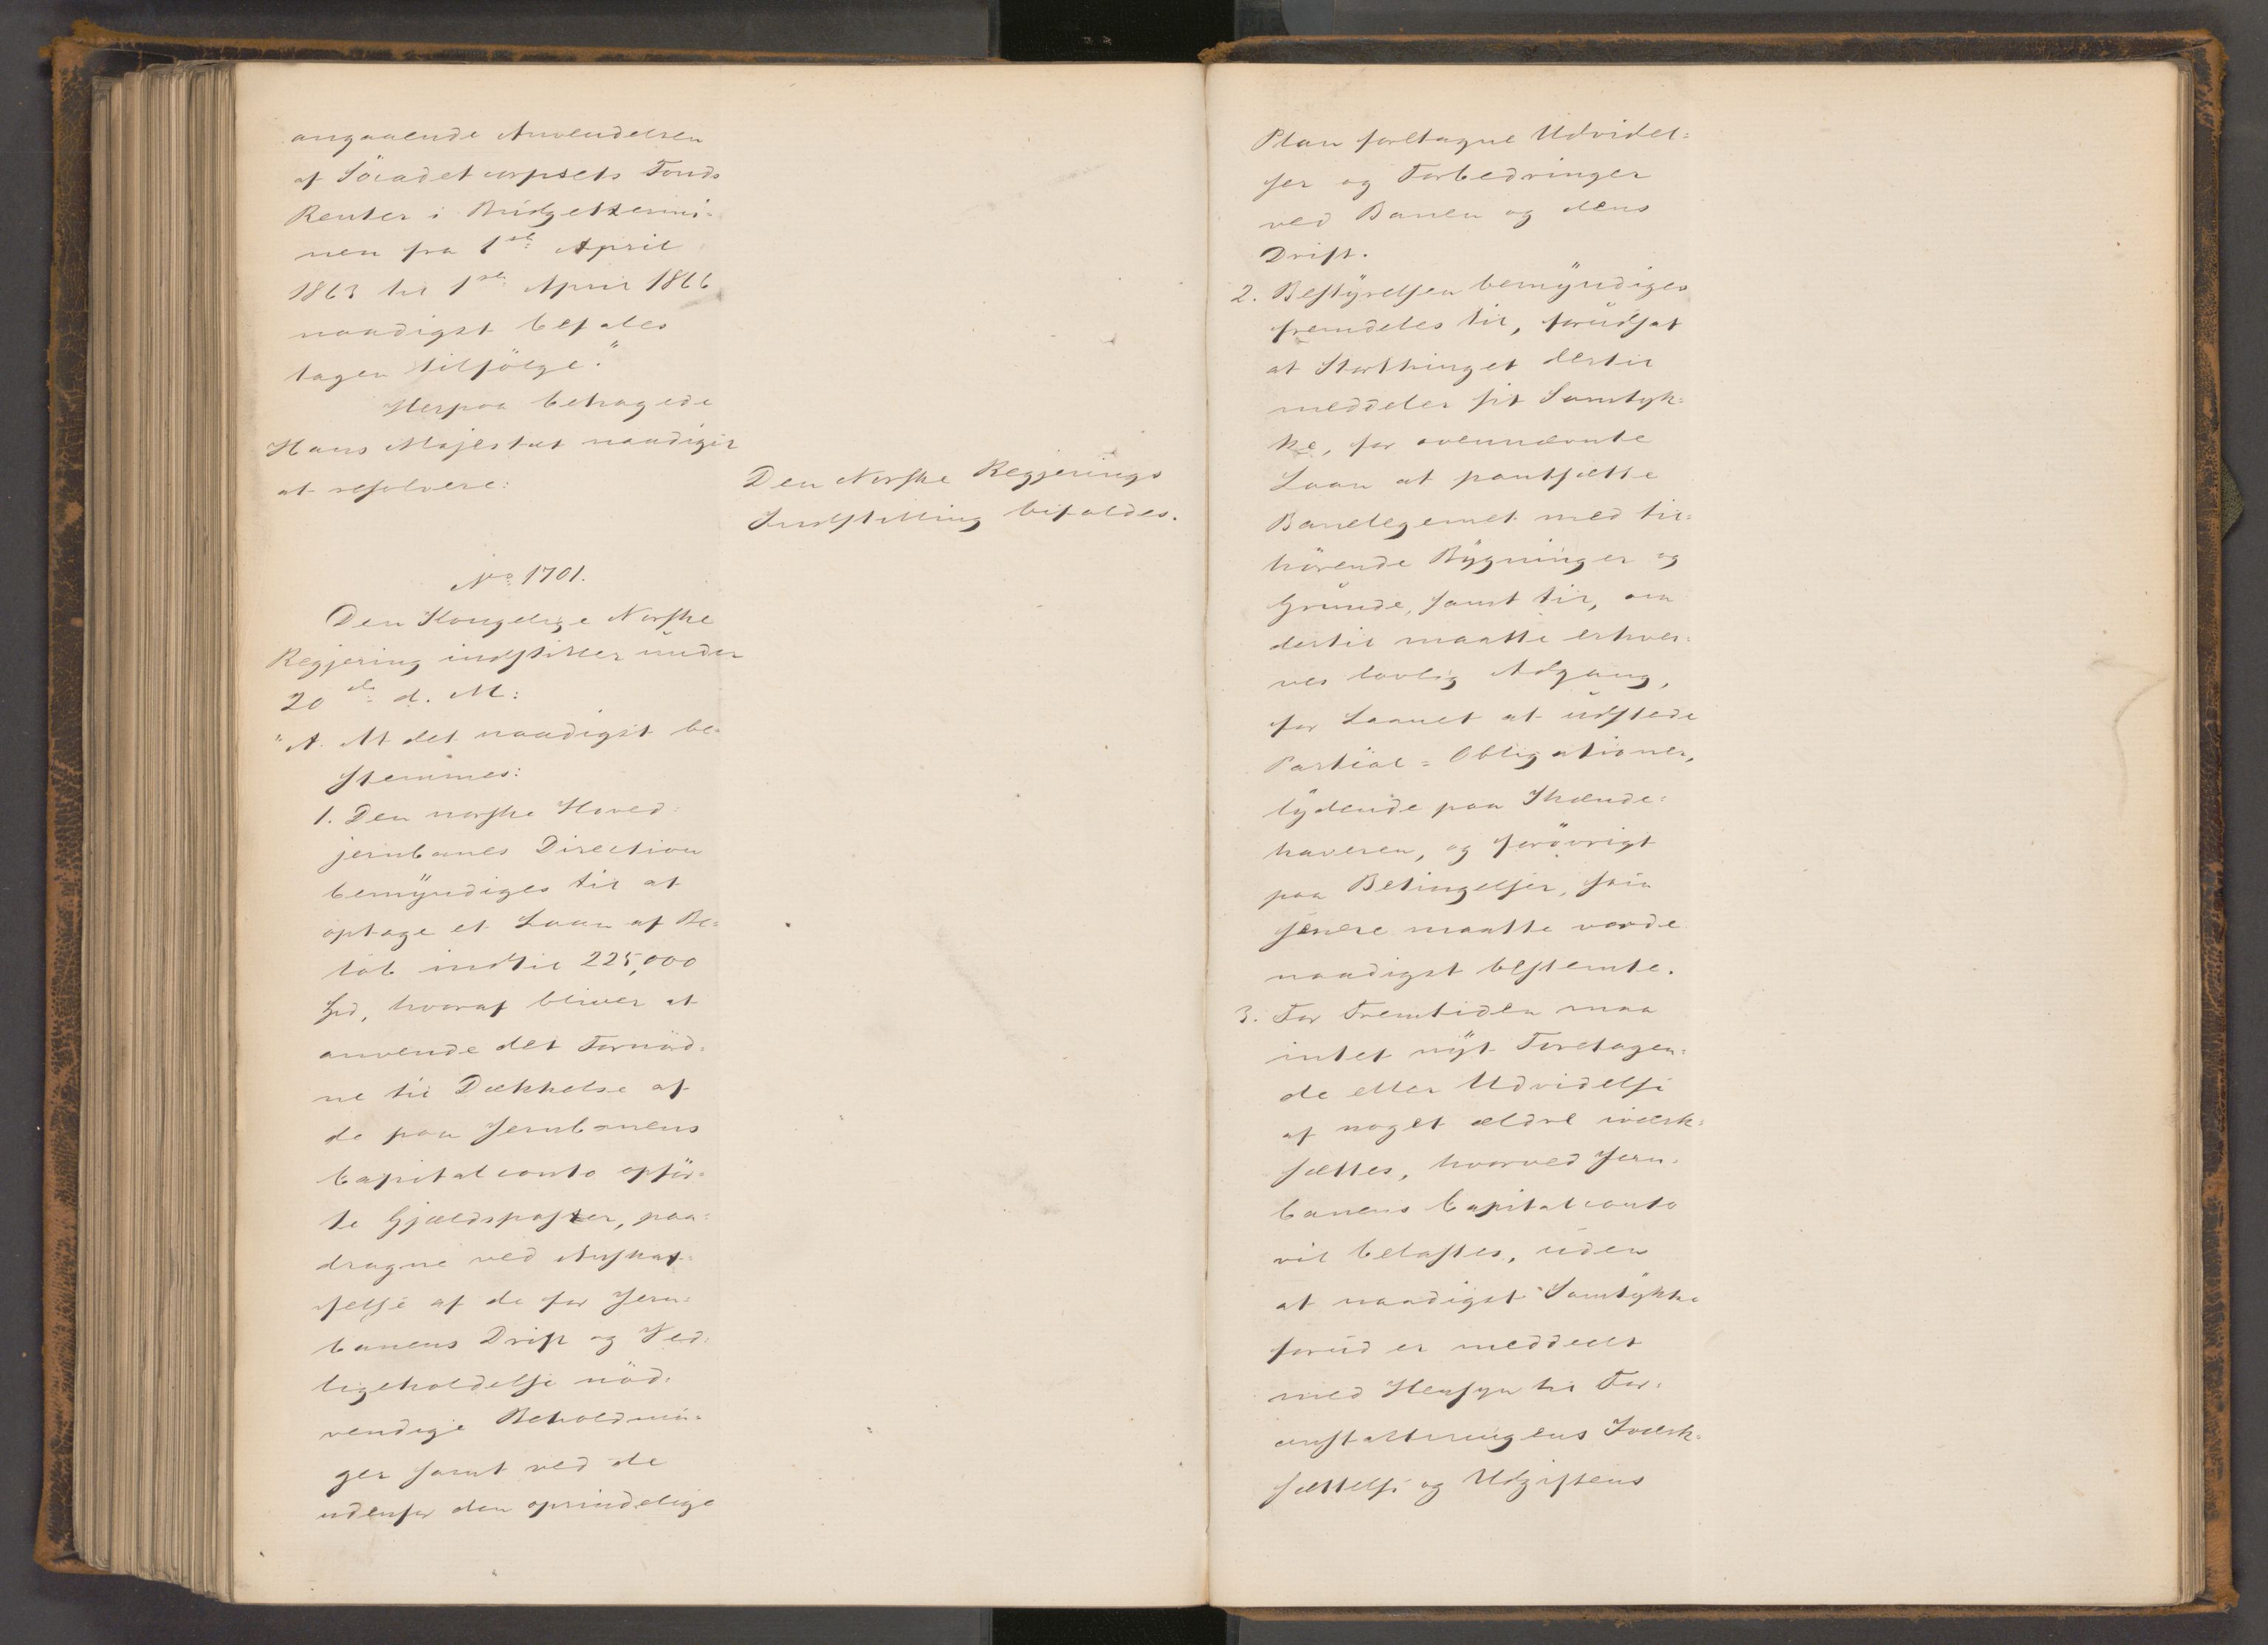 angaaende Anvendelsen
af Söcadetcorpsets Fonds
Renter i Budgettermi-
nen fra 1ste April
1863 til 1ste April 1866
naadigst befales
tagen tilfölge."
Herpaa behagede
Hans Majestæt naadigst
at resolvere:
Den Norske Regjerings
Indstilling bifaldes.
No 1701.
Den Kongelige Norske
Regjering indstiller under
20de d. M:
"A. At det naadigst be-
stemmes:
1. Den norske Hoved-
jernbanes Direction
bemyndiges til at
optage et Laan af Be-
löb indtil 225,000
Spd, hvoraf bliver at
anvende det Fornöd-
ne til Dækkelse af
de paa Jernbanens
Capitalconto opför-
te Gjældsposter, paa-
dragne ved Anskaf-
felse af de for Jern-
banens Drift og Ved-
ligeholdelse nöd-
vendige Beholdnin-
ger samt ved de
udenfor den oprindelige
Plan foretagne Udvidel-
ser og Forbedringer
ved Banen og dens
Drift.
2. Bestyrelsen bemyndiges
fremdeles til, forudsat
at Storthinget dertil
meddeler sit Samtyk-
ke, for ovennævnte
Laan at pantsætte
Banelegemet med til-
hörende Bygninger og
Grunde, samt til, om
dertil maatte erhver-
ves lovlig Adgang,
for Laanet at udstede
Partial-Obligationer,
lydende paa Ihænde-
haveren, og forövrigt
paa Betingelser, som
senere maatte vorde
naadigst bestemte.
3. For Fremtiden maa
intet nyt Foretagen-
de eller Udvidelse
af noget ældre iværk-
sættes, hvorved Jern-
banens Capitalconto
vil belastes, uden
at naadigst Samtykke
forud er meddeelt
med Hensyn til For-
anstaltningens Iværk-
sættelse og Udgiftens